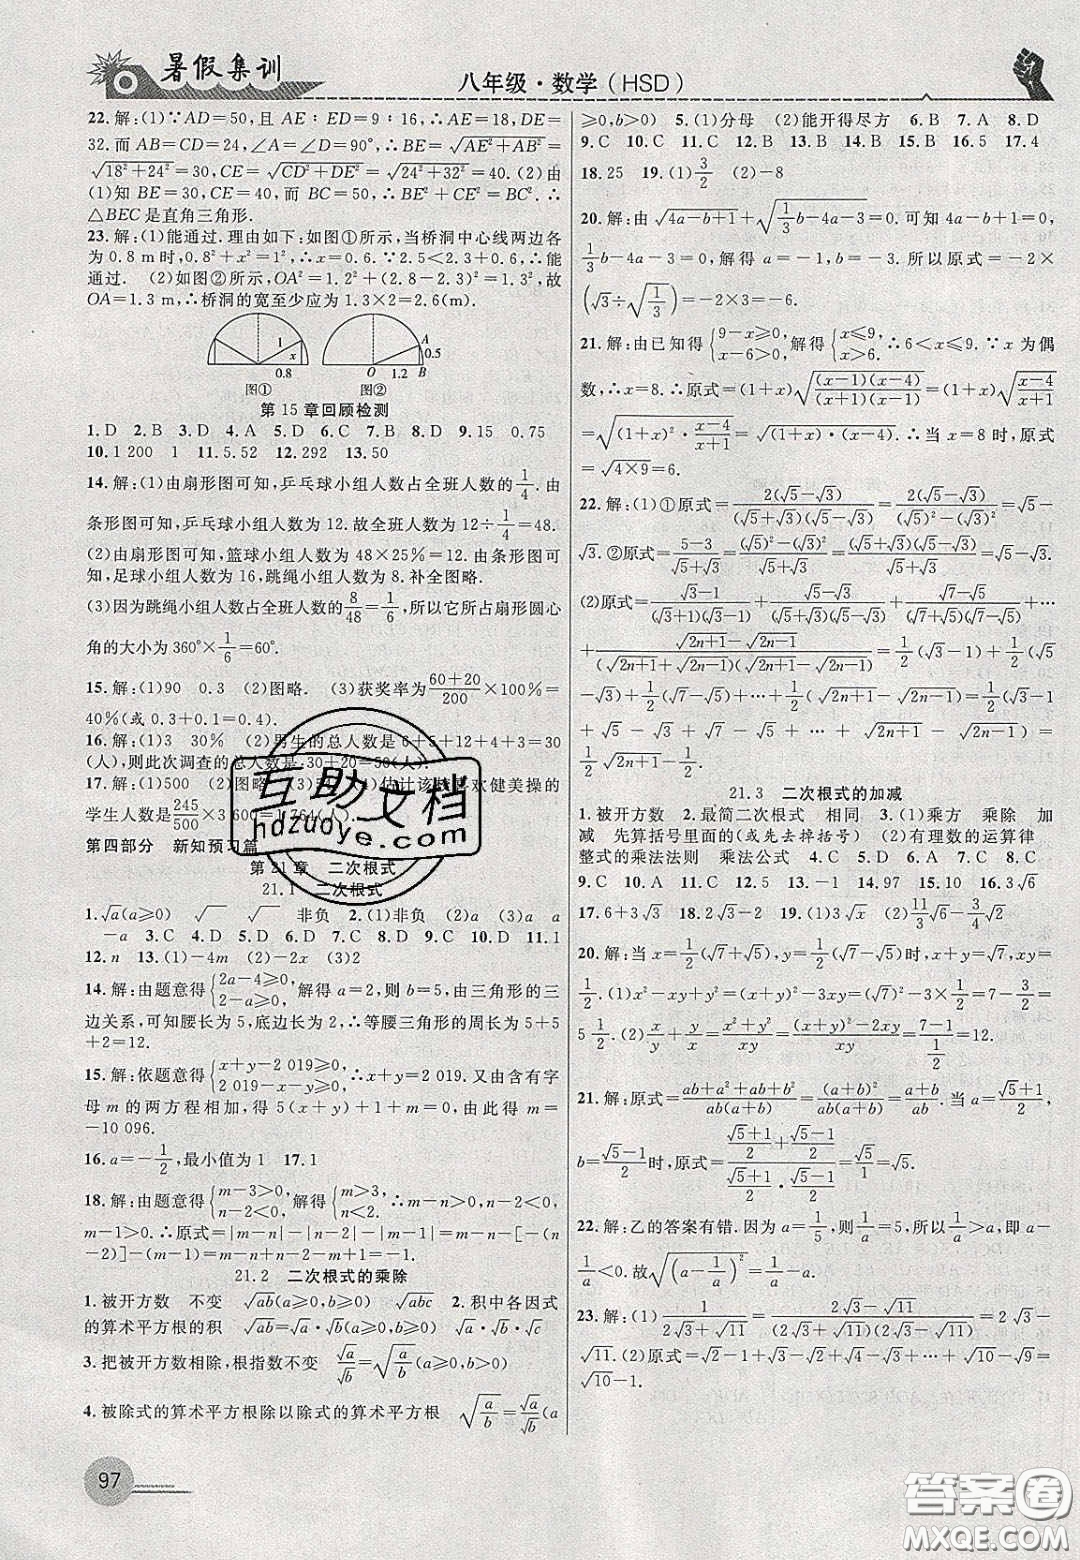 暑假集训
八年级·数学(HSD)
22.解:(1)∵AD=50,且AE∶ED=9∶16,∴AE=18,DE=
32.而AB=CD=24,∠A=∠D=90°,∴BE=√(AE²+AB²)=
√(18²+24²)=30,CE=√(CD²+DE²)=√(24²+32²)=40.(2)由
(1)知BE=30,CE=40,而BC=50,∴BE²+CE²=BC².∴
△BEC是直角三角形.
23.解:(1)能通过.理由如下:如图①所示,当桥洞中心线两边各
为0.8 m时,x²+0.8²=1²,∴x=0.6.∵2.5<2.3+0.6,∴能
通过. (2)如图②所示,OA²=1.2²+(2.8-2.3)²=1.3²,故
OA=1.3 m,∴桥洞的宽至少应为1.3×2=2.6(m).
1 x 0.8 图①
A 0.5 O 1.2 B 图②
第15章回顾检测
1.D 2.B 3.D 4.A 5.D 6.C 7.B 8.D 9.15 0.75
10.1 200 1 11.5.52 12.292 13.50
14.解:(1)由扇形图可知,乒乓球小组人数占全班人数的1/4.由
条形图可知,乒乓球小组人数为12.故全班人数为12÷1/4=48.
(2)由扇形图可知,篮球小组人数为48×25%=12.由条形图可
知,足球小组人数为16,跳绳小组人数为8.补全图略.
(3)因为跳绳小组人数占全班人数的8/48=1/6,所以它所占扇形圆心
角的大小为360°×1/6=60°.
15.解:(1)90 0.3 (2)图略. (3)获奖率为(60+20)/200×100%=
40%(或0.3+0.1=0.4).
16.解:(1)3 30% (2)男生的总人数是6+5+12+4+3=30
(人),则此次调查的总人数是30+20=50(人).
17.解:(1)500 (2)图略 (3)54° (4)估计该校喜欢健美操的
学生人数是245/500×3 600=1 764(人).
第四部分 新知预习篇
第21章 二次根式
21.1 二次根式
1.√a(a≥0) √ √ 非负 2.(1)非负 (2)a (3)a a
-a 3.C 4.D 5.D 6.C 7.D 8.D 9.D 10.D 11.1
12.n 13.(1)-4m (2)-2x (3)2
14.解:由题意得{2a-4≥0, 2-a≥0, 解得a=2,则b=5,由三角形的三
边关系,可知腰长为5,底边长为2,∴等腰三角形的周长为5+5
+2=12.
15.解:依题意得{x+y-2 019≥0, 2 019-x-y≥0, ∴x+y=2 019.又由两个含有字
母m的两方程相加,得5(x+y)+1+m=0,解得m=
-10 096.
16.a=-1/2,最小值为1 17.1
18.解:由题意得{m-3>0, n-2<0, 解得{m>3, n<2. ∴m-n>0,n-2<0,
m-1>0.∴原式=|m-n|-|n-2|-|m-1|=m-n-[-(n
-2)]-(m-1)=m-n+n-2-m+1=-1.
21.2 二次根式的乘除
1.被开方数 不变 √(ab)(a≥0,b≥0) √(abc) 2.积中各因式
的算术平方根的积 √(ab)=√a·√b(a≥0,b≥0) √a·√b·√c
3.把被开方数相除,根指数不变 √a/√b=√(a/b)(a≥0,b>0)
4.被除式的算术平方根除以除式的算术平方根 √(a/b)=√a/√b(a
≥0,b>0) 5.(1)分母 (2)能开得尽方 6.B 7.A 8.D
9.C 10.C 11.C 12.D 13.B 14.B 15.B 16.5 17.4
18.25 19.(1)3/2 (2)-8
20.解:由√(4a-b+1)+√(1/3b-4a-3)=0.可知4a-b+1=0,
1/3b-4a-3=0,解得a=-1,b=-3.所以原式=-2×
(√3÷√(1/3))=-2×3=-6.
21.解:由已知得{9-x≥0, x-6>0, 即{x≤9, x>6, ∴6<x≤9.∵x为偶
数,∴x=8.∴原式=(1+x)√((x-1)(x-4)/(x+1)(x-1))=(1+x)√((x-4)/(x+1))
=√((1+x)²·(x-4)/(x+1))=√((1+x)·(x-4)).∴当x=8时,原式
=√(4×9)=6.
22.解:(1)①原式=2(√5-√3)/((√5+√3)(√5-√3))=2(√5-√3)/((√5)²-(√3)²)=√5-
√3.②原式=(5-3)/(√5+√3)=((√5)²-(√3)²)/(√5+√3)=((√5+√3)(√5-√3))/(√5+√3)=√5-√3.
(2)原式=(√3-1)/((√3+1)(√3-1))+(√5-√3)/((√5+√3)(√5-√3))+(√7-√5)/((√7+√5)(√7-√5))+…
+(√(2n+1)-√(2n-1))/((√(2n+1)+√(2n-1))(√(2n+1)-√(2n-1)))=1/2(√3-1)+1/2(√5
-√3)+1/2(√7-√5)+…+1/2(√(2n+1)-√(2n-1))=1/2(√3-1
+√5-√3+√7-√5+…+√(2n+1)-√(2n-1))=
1/2√(2n+1)-1/2.
21.3 二次根式的加减
1.被开方数 2.最简二次根式 相同 3.(1)乘方 乘除 加
减 先算括号里面的(或先去掉括号) (2)有理数的运算律
整式的乘法法则 乘法公式 4.C 5.D 6.A 7.C 8.C
9.C 10.A 11.C 12.5 13.-1 14.97 15.10 16.3√6
17.6+3√3 18.2√3-2 19.(1)3√x (2)11/3√3-3/4√2
20.解:当x=1/2(√7+√5),y=1/2(√7-√5)时,x+y=√7,xy=
1/2.(1)x²-xy+y²=(x+y)²-3xy=(√7)²-3×1/2=7-3/2=
5 1/2.(2)x/y+y/x=(x²+y²)/xy=((x+y)²-2xy)/xy=(7-1)/(1/2)=12.
21.解:原式=(ab+a²+ab+b²)/(ab(a+b))=(a+b)²/(ab(a+b))=(a+b)/ab.当a=(√5+1)/2,
b=(√5-1)/2时,原式=((√5+1)/2+(√5-1)/2)/((√5+1)/2·(√5-1)/2)=√5/1=√5.
22.解:乙的答案有错.因为a=1/5,则1/a=5,所以1/a>a,即a-
1/a<0.故√((a-1/a)²)=1/a-a.
23.解:(1)1/(2√3+√11)=(2√3-√11)/((2√3+√11)(2√3-√11))=2√3-
√11.(2)原式=√2-1+√3-√2+√4-√3+…+√10-√9=
√10-1.
97
互助文档
hdzuoye.com
答案圈
MXQE.COM